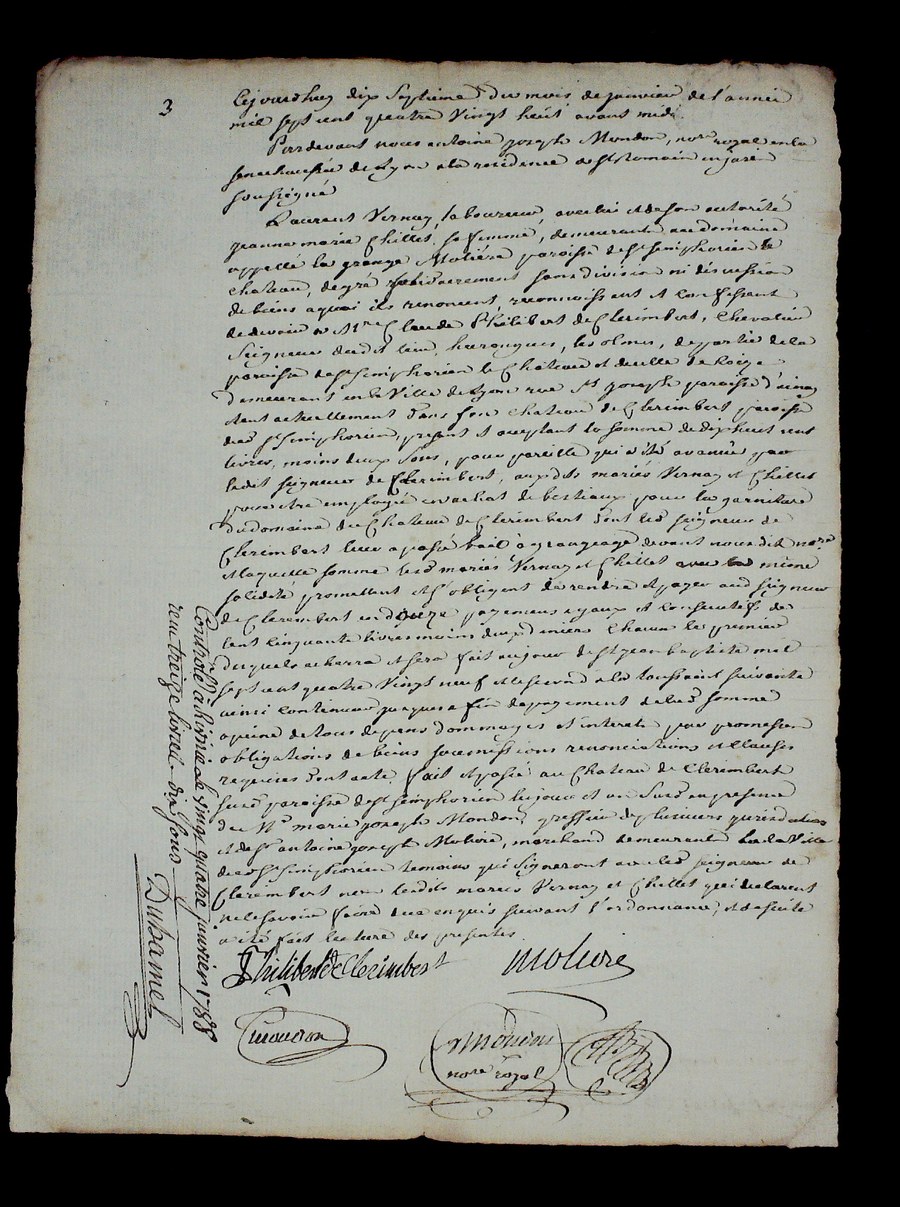 3
Cejourdhuy dix septieme du mois de janvier de l'année
mil sept cent quatre vingt huit avant midi.
Pardevant nous antoine joseph Mondon, nore royal en la
senechaussée de Lyon a la residence de st Romain en jarêt
soussigné
Laurent Vernay, laboureur, avec lui et de son autorité
jeanne marie Chillet, sa femme, demeurants au domaine
appellé la grange Molière paroisse de st simphorien le
chateau, de gré solidairement sans division ni discussion
de biens a quoi ils renoncent, reconnoissent et confessent
de devoir a Mre Claude Philibert de Clerimbert, Chevalier
Seigneur dudit lieu, hurongues, les olmes, de partie de la
paroisse de st simphorien le Chateau et de celle de
demeurant en la Ville de Lyon rue st joseph paroisse d'ainay
etant actuellement dans son chateau de Clerimbert paroisse
dud. st simphorien, present et acceptant la somme de dix huit cent
livres, moins deux sous, pour pareille qui a été avancée par
ledit seigneur de Clerimbert, auxdits mariés Vernay et Chillet
pour etre employée en achat de bestiaux pour la garniture
du domaine du Chateau de Clerimbert dont led. seigneur de
Clerimbert leur a passé bail à grangeage devant nous dit nore
et laquelle somme lesd. mariés Vernay et Chillet avec la même
solidité promettent et s'obligent de rendre et payer aud. seigneur
de Clerimbert en douze payemens egaux et consecutifs de
cent cinquante livres moins deux deniers chacun le premier
desquels echerra et sera fait au jour de st jean baptiste mil
sept cent quatre vingt neuf et le second a la toussaint suivante
ainsi continuer jusques a fin de payement de lad. somme
a peine de tous depens dommages et interets par promesses
obligations de biens soumissions renonciations et clauses
requises dont acte. fait et passé au Chateau de Clerimbert
susd. paroisse de st simphorien les jour et an susd. en presence
de Me marie joseph Mondon, greffier de plusieurs jurisdictions
et de sr antoine joseph Molière, marchand demeurant en la Ville
de st simphorien temoins qui signeront avec led. seigneur de
Clerimbert non lesdits mariés Vernay et Chillet qui declarent
ne le savoir faire de ce enquis suivant l'ordonnance, et de suite
a été fait lecture des presentes
Philibert de Clerimbert
Moliere
Mondon
Mondon
nore royal
Controlé à le vingt quatre janvier 1788
reçu treize livres dix sous
Duhamel